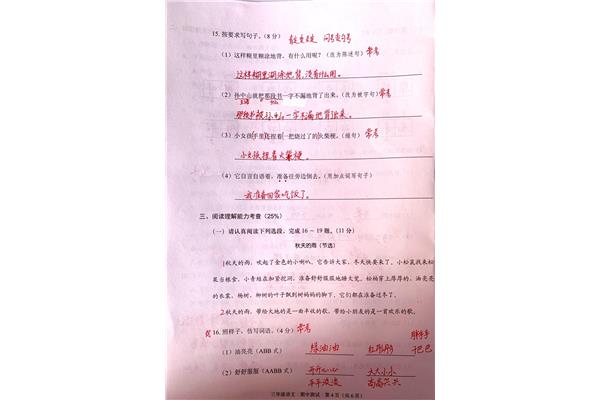 15. 按要求写句子。(8分) 肯定变否定 问号变句号
(1) 这样糊里糊涂地背,有什么用呢?(改为陈述句) 常考
这样糊里糊涂地背,没有什么用。
(2) 孙中山就把那段书一字不漏地背了出来。(改为被字句) 常考
那段书被孙中山一字不漏地背出来。
(3) 小女孩手里还捏着一把烧过了的火柴梗。(缩句) 常考
小女孩捏着火柴梗。
(4) 它自言自语着,准备往旁边倒去。(用加点词写句子)
我准备回家吃饭了。
三、阅读理解能力考查(25%)
(一) 请认真阅读下列选段,完成 16 ~ 19 题。(11 分)
秋天的雨(节选)
1秋天的雨,吹起了金色的小喇叭,它告诉大家,冬天快要来了。小松鼠找来松
果当粮食,小青蛙在加紧挖洞,准备舒舒服服地睡大觉。松柏穿上厚厚的、油亮亮
的衣裳,杨树、柳树的叶子飘到树妈妈的脚下。它们都在准备过冬了。
2秋天的雨,带给大地的是一曲丰收的歌,带给小朋友的是一首欢乐的歌。
16. 照样子,仿写词语。(4 分) 常考
胖乎乎
(1) 油亮亮(ABB 式) 绿油油 红彤彤 干巴巴
(2) 舒舒服服(AABB 式) 开开心心 大大小小
平平淡淡 高高兴兴
三年级语文 期中测试 第 4 页 (共 6 页)